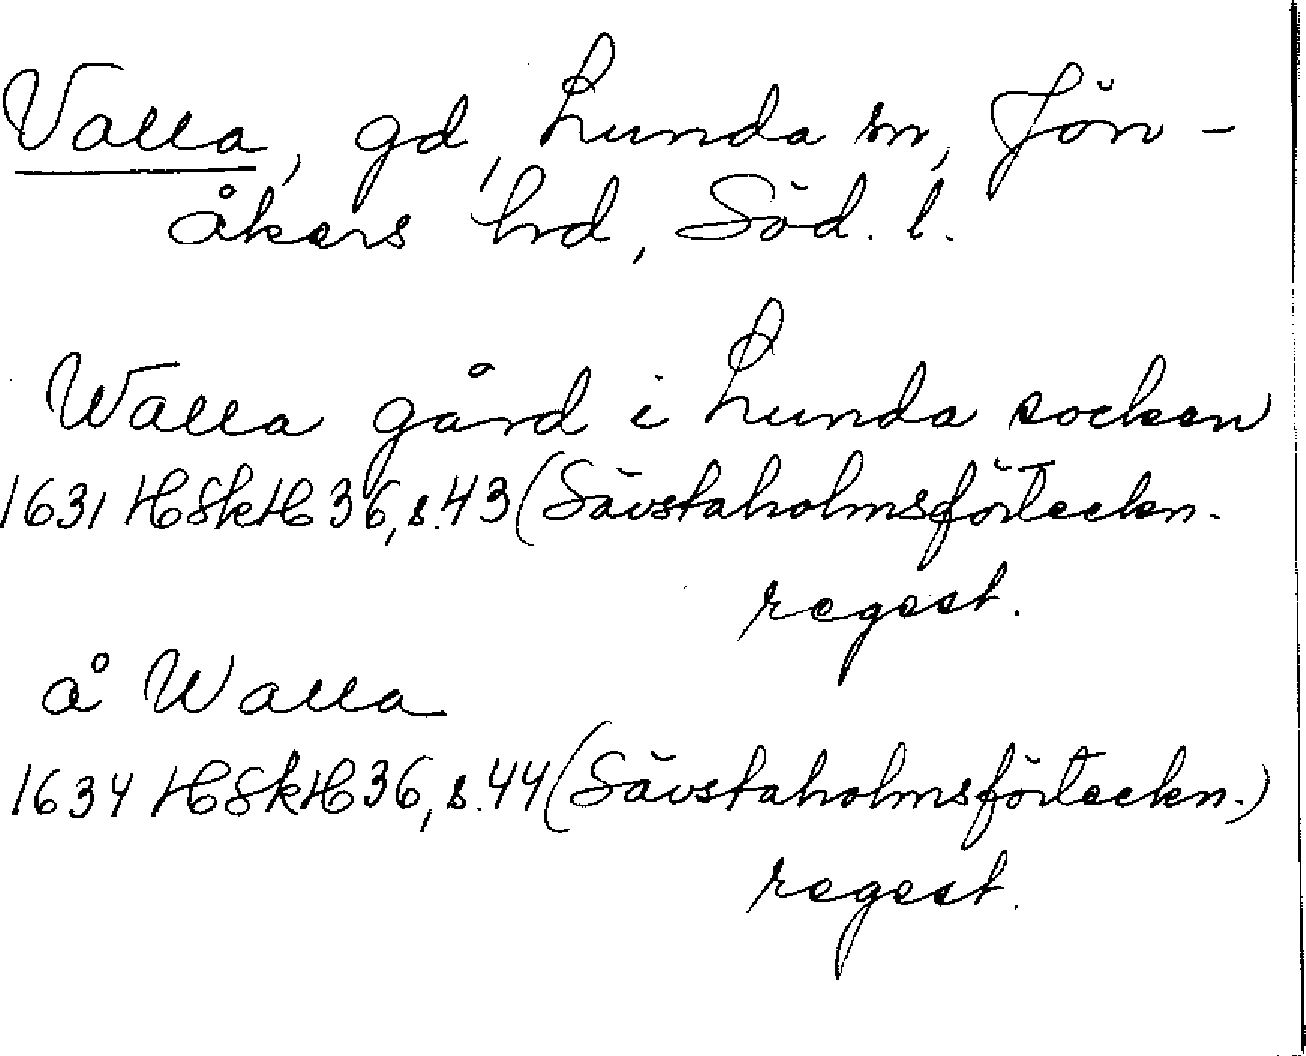 Valla, gd, Lunda sn, Jön-
åkers hrd, Söd. l.
Walla gård i Lunda socken
1631 HSkH 36, s. 43 (Sävstaholmsförteckn.
regest.
å Walla
1634 HSkH 36, s. 44 (Sävstaholmsförteckn.)
regest.